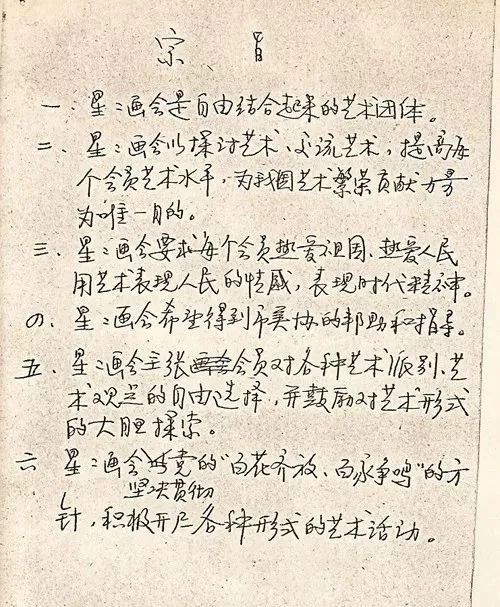 宗旨
一、星:画会是自由结合起来的艺术团体。
二、星:画会以探讨艺术、交流艺术,提高每
个会员艺术水平,为我国艺术繁荣贡献力量
为唯一目的。
三、星:画会要求每个会员热爱祖国、热爱人民
用艺术表现人民的情感,表现时代精神。
四、星:画会希望得到市美协的帮助和指导。
五、星:画会主张会员对各种艺术派别、艺
术观点的自由选择,并鼓励对艺术形式
的大胆探索。
六 星:画会党的“百花齐放、百家争鸣”的方
坚决贯彻
针,积极开展各种形式的艺术活动。